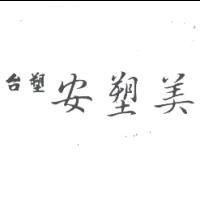 台塑安塑美